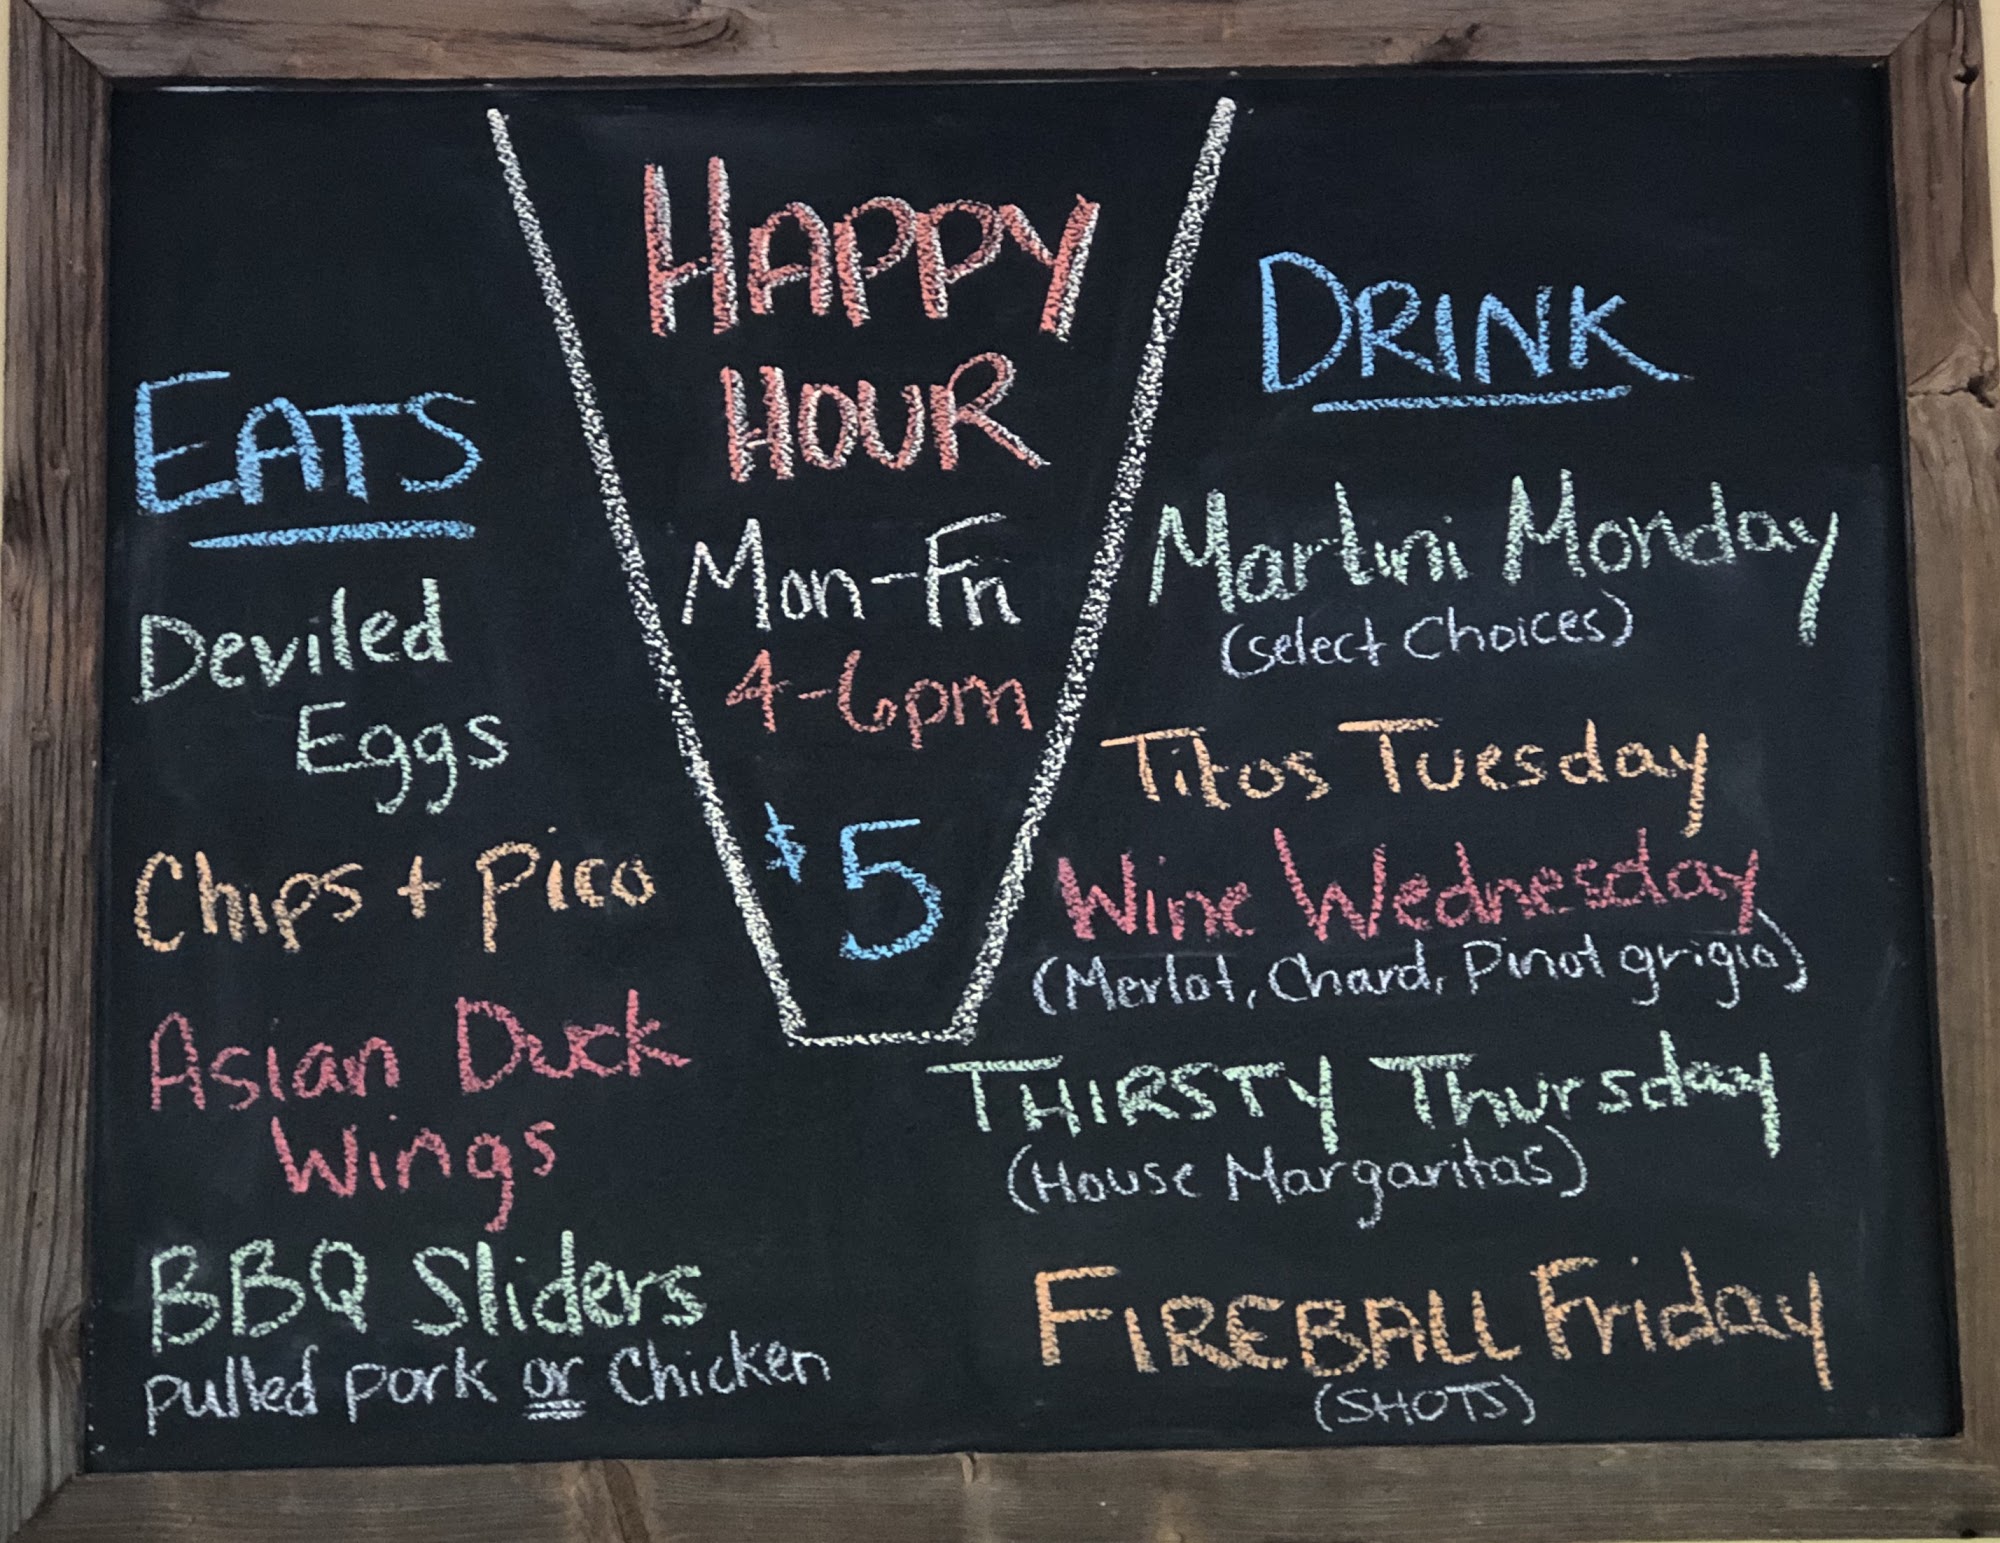 HAPPY
HOUR
Mon-Fri
4-6pm
$5
EATS
Deviled
Eggs
Chips + Pico
Asian Duck
Wings
BBQ Sliders
pulled pork or Chicken
DRINK
Martini Monday
(select Choices)
Titos Tuesday
Wine Wednesday
(Merlot, Chard, Pinot grigio)
THIRSTY Thursday
(House Margaritas)
FIREBALL Friday
(SHOTS)